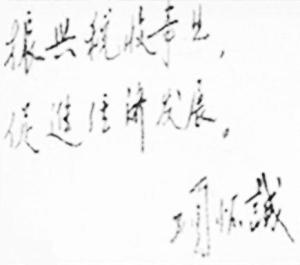 振兴税收事业，
促进经济发展。
项怀诚